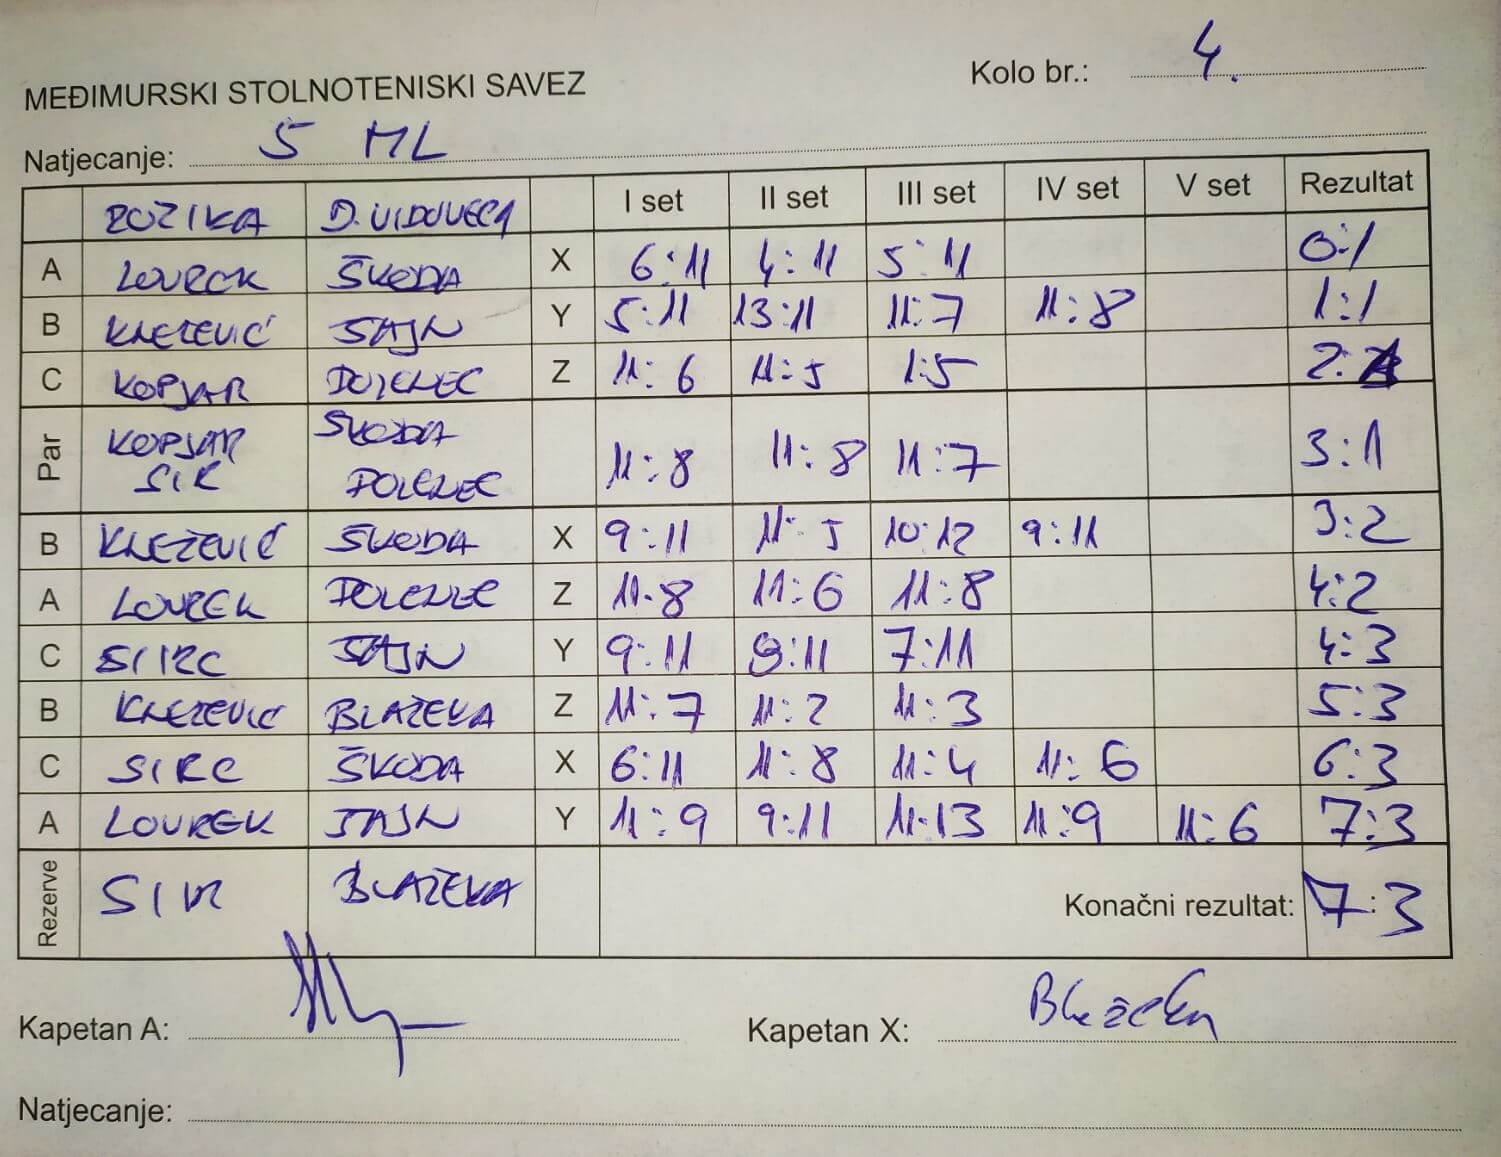 MEĐIMURSKI STOLNOTENISKI SAVEZ Kolo br.: 4.
Natjecanje: 5 ML
POZIKA D. VIDOVECA I set II set III set IV set V set Rezultat
A LOVREK ŠKODA X 6:11 4:11 5:11 0:1
B KNEZEVIĆ ŠAJN Y 5:11 13:11 11:7 11:8 1:1
C KOPJAR DOLENEC Z 11:6 11:5 1:5 2:1
Par KOPJAR SIR ŠKODA DOLENEC 11:8 11:8 11:7 3:1
B KNEŽEVIĆ ŠKODA X 9:11 11:5 10:12 9:11 3:2
A LOVREK DOLENEC Z 11:8 11:6 11:8 4:2
C SIRC ŠAJN Y 9:11 9:11 7:11 4:3
B KNEZEVIĆ BLAŽEKA Z 11:7 11:2 11:3 5:3
C SIRC ŠKODA X 6:11 11:8 11:4 11:6 6:3
A LOVREK ŠAJN Y 11:9 9:11 11:13 11:9 11:6 7:3
Rezerve SIR BLAŽEKA Konačni rezultat: 7:3
Kapetan A: Kapetan X: Blažeka
Natjecanje: